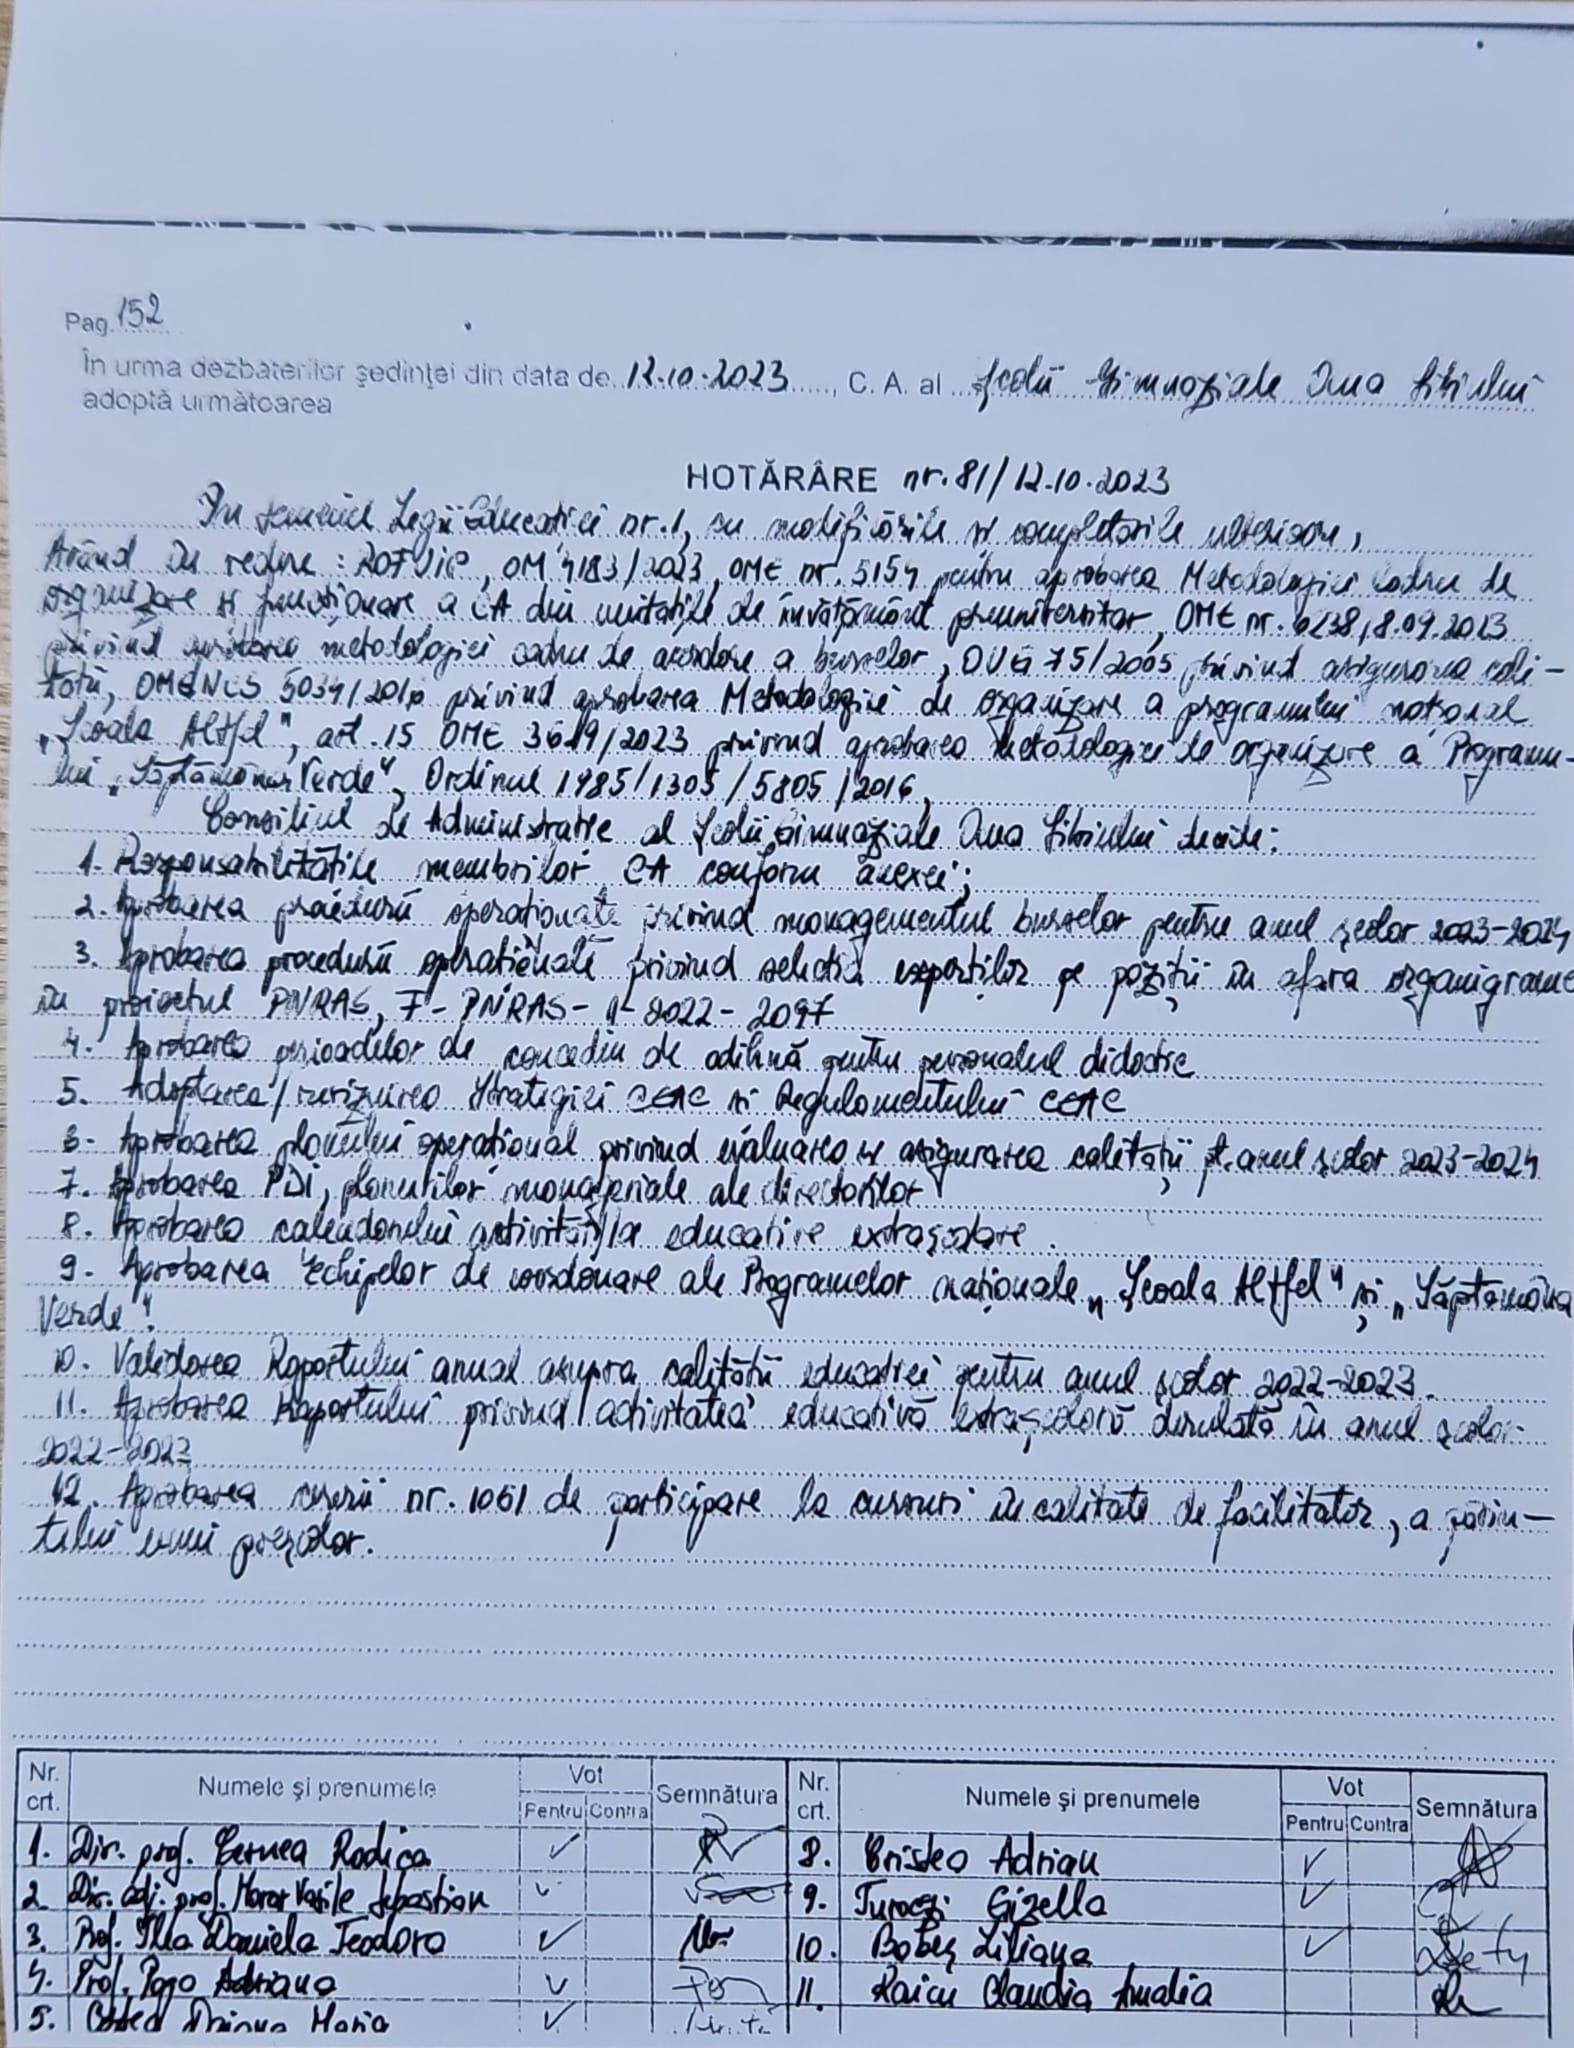 Pag. 152
În urma dezbaterilor şedinţei din data de 12.10.2023, C. A. al Școlii Gimnaziale Ina
adoptă următoarea
HOTĂRÂRE nr. 81/12.10.2023
În temeiul Legii Educației nr. 1, cu modificările și completările ulterioare,
Având în vedere : ROFUIP, OM 4183/2023, OME nr. 5154 pentru aprobarea Metodologiei cadru de
organizare și funcționare a CA din unitățile de învățământ preuniversitar, OME nr. 6238/8.09.2023
privind metodologiei cadru de acordare a burselor, OUG 75/2005 privind asigurarea cali-
tății, OMENCS 5034/2016 privind aprobarea Metodologiei de organizare a programului național
„Școala Altfel", art. 15 OME 3629/2023 privind aprobarea Metodologiei de organizare a Programu-
lui „Săptămâna Verde", Ordinul 1985/1305/5805/2016,
Consiliul de Administrație al Școlii Gimnaziale decide:
1. Responsabilitățile membrilor CA conform anexei;
2. Aprobarea procedurii operaționale privind managementul burselor pentru anul școlar 2023-2024
3. Aprobarea procedurii operaționale privind selecția experților pe poziții în afara organigramei
în proiectul PNRAS, F-PNRAS-1-2022-2097
4. Aprobarea perioadelor de concediu de odihnă pentru personalul didactic
5. Adoptarea/revizuirea Strategiei CEAC și Regulamentului CEAC
6. Aprobarea planului operațional privind evaluarea și asigurarea calității pt. anul școlar 2023-2024
7. Aprobarea PDI, planurilor manageriale ale directorilor
8. Aprobarea calendarului activităților educative extrașcolare.
9. Aprobarea Echipelor de coordonare ale Programelor naționale „Școala Altfel" și „Săptămâna
Verde".
10. Validarea Raportului anual asupra calității educației pentru anul școlar 2022-2023.
11. Aprobarea Raportului privind activitatea educativă extrașcolară derulată în anul școlar
2022-2023
12. Aprobarea cererii nr. 1061 de participare la cursuri în calitate de facilitator, a părin-
telui unui preșcolar.
Nr. crt. Numele şi prenumele Vot Pentru Contra Semnătura Nr. crt. Numele şi prenumele Vot Pentru Contra Semnătura
1. Dir. prof. Cernea Rodica 8. Cristea Adrian
2. Dir. adj. prof. Morar Vasile Sebastian 9. Turoczi Gizella
3. Prof. Illa Daniela Teodora 10. Bobeș Liliana
4. Prof. Popa Adriana 11. Raicu Claudia Amalia
5. Maria